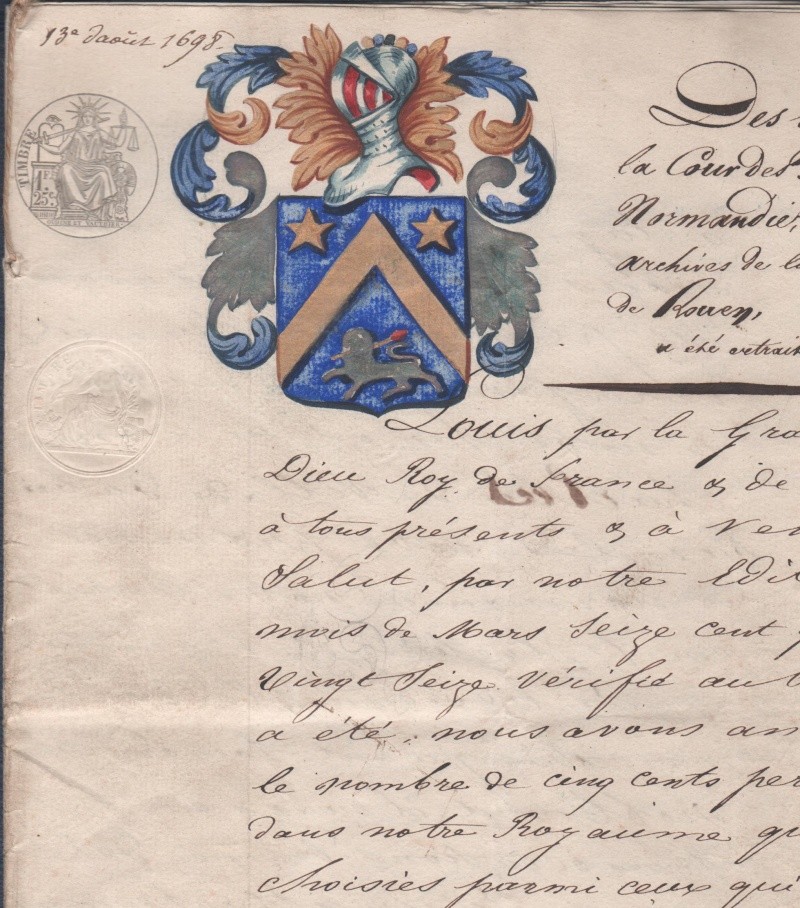 13e d'aoùt 1698.
TIMBRE
1F
25c
Des
la Cour des
Normandie,
archives de la
de Rouen,
a été extrait
Louis par la Gra
Dieu Roy de France & de
à tous présents & à Ven
Salut, par notre Edit
mois de Mars Seize cent
Vingt Seize vérifié au
a été, nous avons an
le nombre de cinq cents per
dans notre Royaume qu
choisies parmi ceux qui